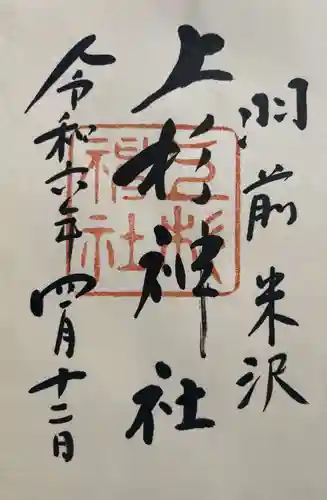 羽前 米沢
上杉神社
令和六年四月十二日
上杉
神社